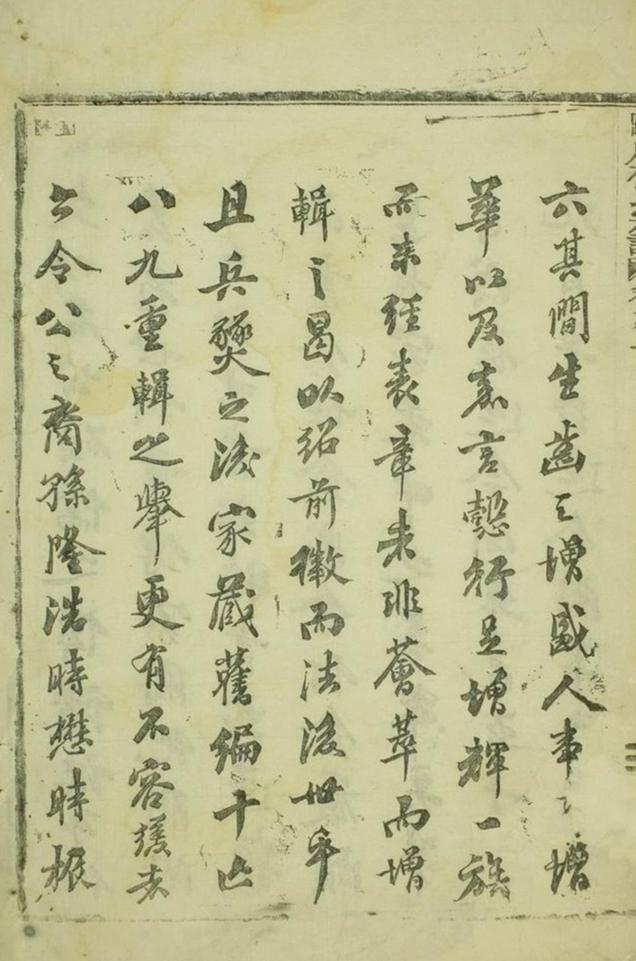 六其間生齒之增盛人事之增
華以及嘉言懿行足增輝一族
而未經表章者非薈萃而增
輯之曷以紹前徽而法後世乎
且兵燹之後家藏舊編十亡
八九重輯之舉更有不容緩者
公令公之裔孫隆浩時懋時